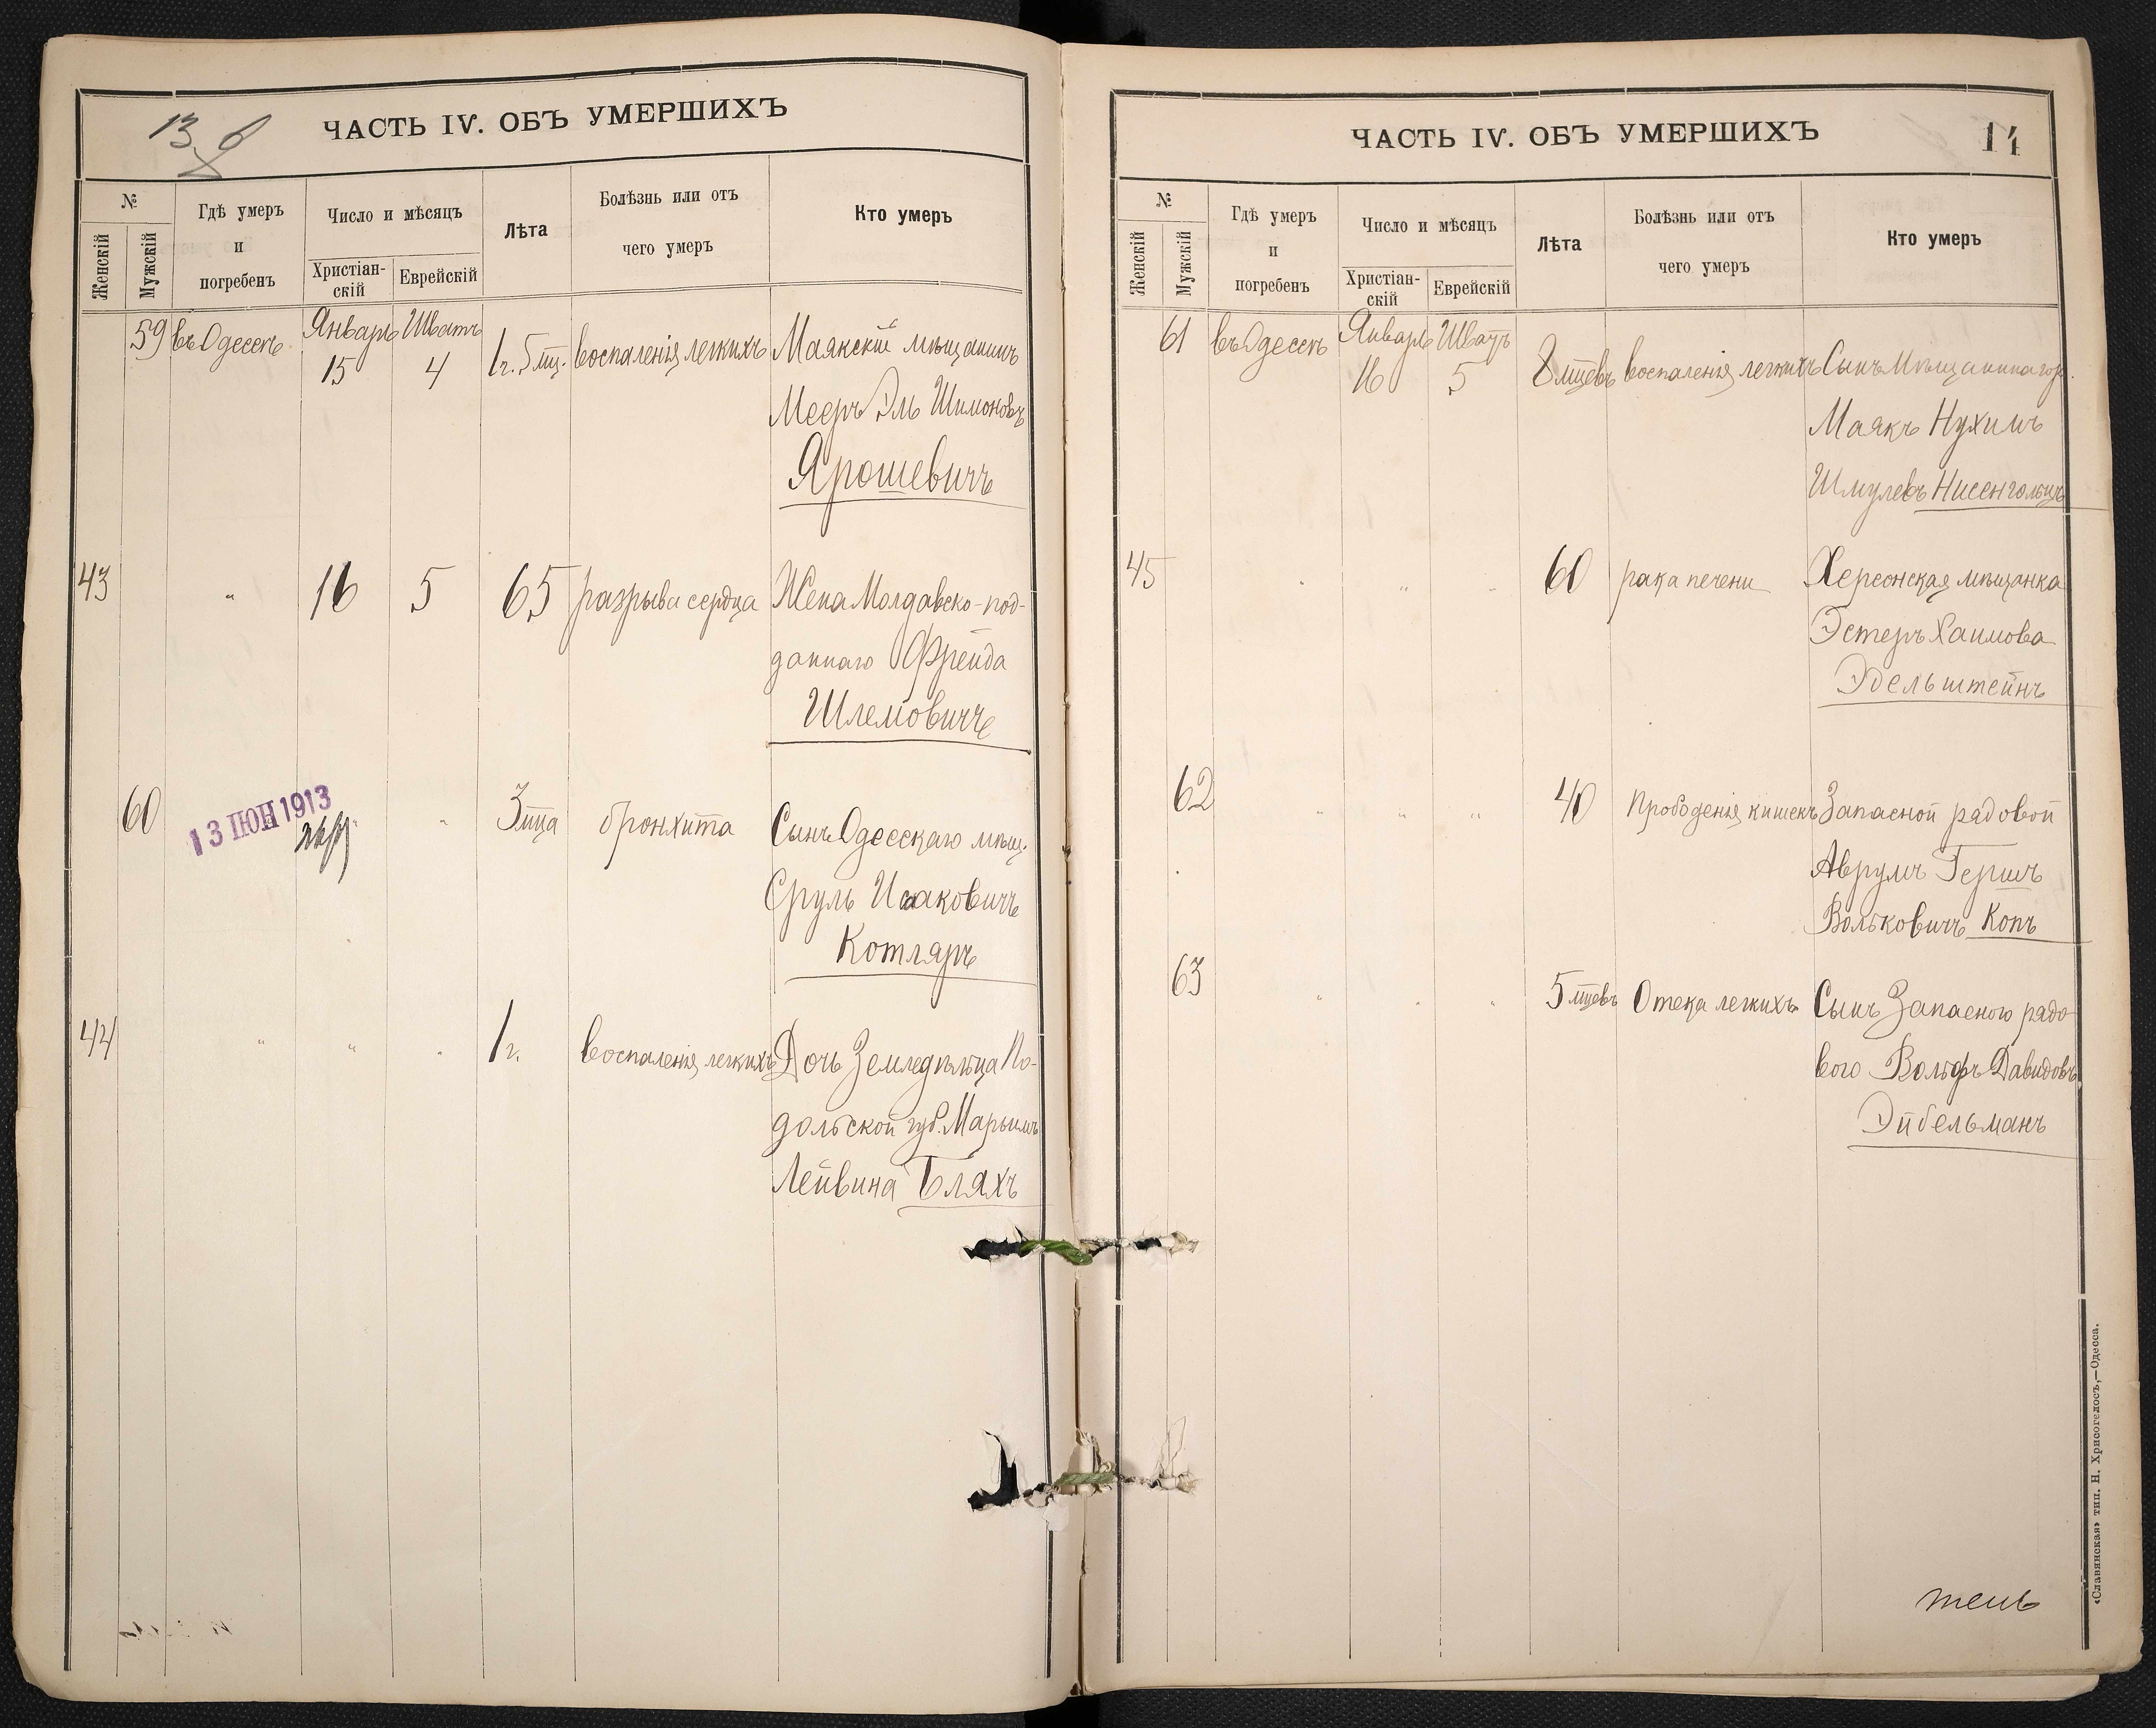 13
ЧАСТЬ IV. ОБЪ УМЕРШИХЪ
№
Женскій
Мужскій
Гдѣ умеръ
и
погребенъ
Число и мѣсяцъ
Христіан-
скій
Еврейскій
Лѣта
Болѣзнь или отъ
чего умеръ
Кто умеръ
59 въ Одессѣ Январь 15 Шватъ 4 1 г. 5 мц. воспаленія легкихъ Маякскій мѣщанинъ
Мееръ Эль Шимоновъ
Ярошевичъ
43 " 16 5 65 разрыва сердца Жена Молдавско-под-
даннаго Фрейда
Шлемовичъ
60 " 3 мца бронхита Сынъ Одесскаго мѣщ.
13 ІЮН 1913
Сруль Исаковичъ
Котляръ
44 " " " 1 г. воспаленія легкихъ Дочь Земледѣльца По-
дольской губ. Марьимъ
Лейвина Бляхъ
ЧАСТЬ IV. ОБЪ УМЕРШИХЪ
14
№
Женскій
Мужскій
Гдѣ умеръ
и
погребенъ
Число и мѣсяцъ
Христіан-
скій
Еврейскій
Лѣта
Болѣзнь или отъ
чего умеръ
Кто умеръ
61 въ Одессѣ Январь 16 Шватъ 5 8 мцевъ воспаленія легкихъ Сынъ Мѣщанина гор.
Маякъ Нухимъ
Шмулевъ Нисенгольцъ
45 " " " 60 рака печени Херсонская мѣщанка
Эстеръ Хаимова
Эдельштейнъ
62 " " " 40 Прободенія кишекъ Запасной рядовой
Аврумъ Гершъ
Вольковичъ Копъ
63 " " " 5 мцевъ Отека легкихъ Сынъ Запасного рядо-
вого Вольфъ Давидовъ
Эйбельманъ
«Славянская» тип. Н. Хрисогелосъ,—Одесса.